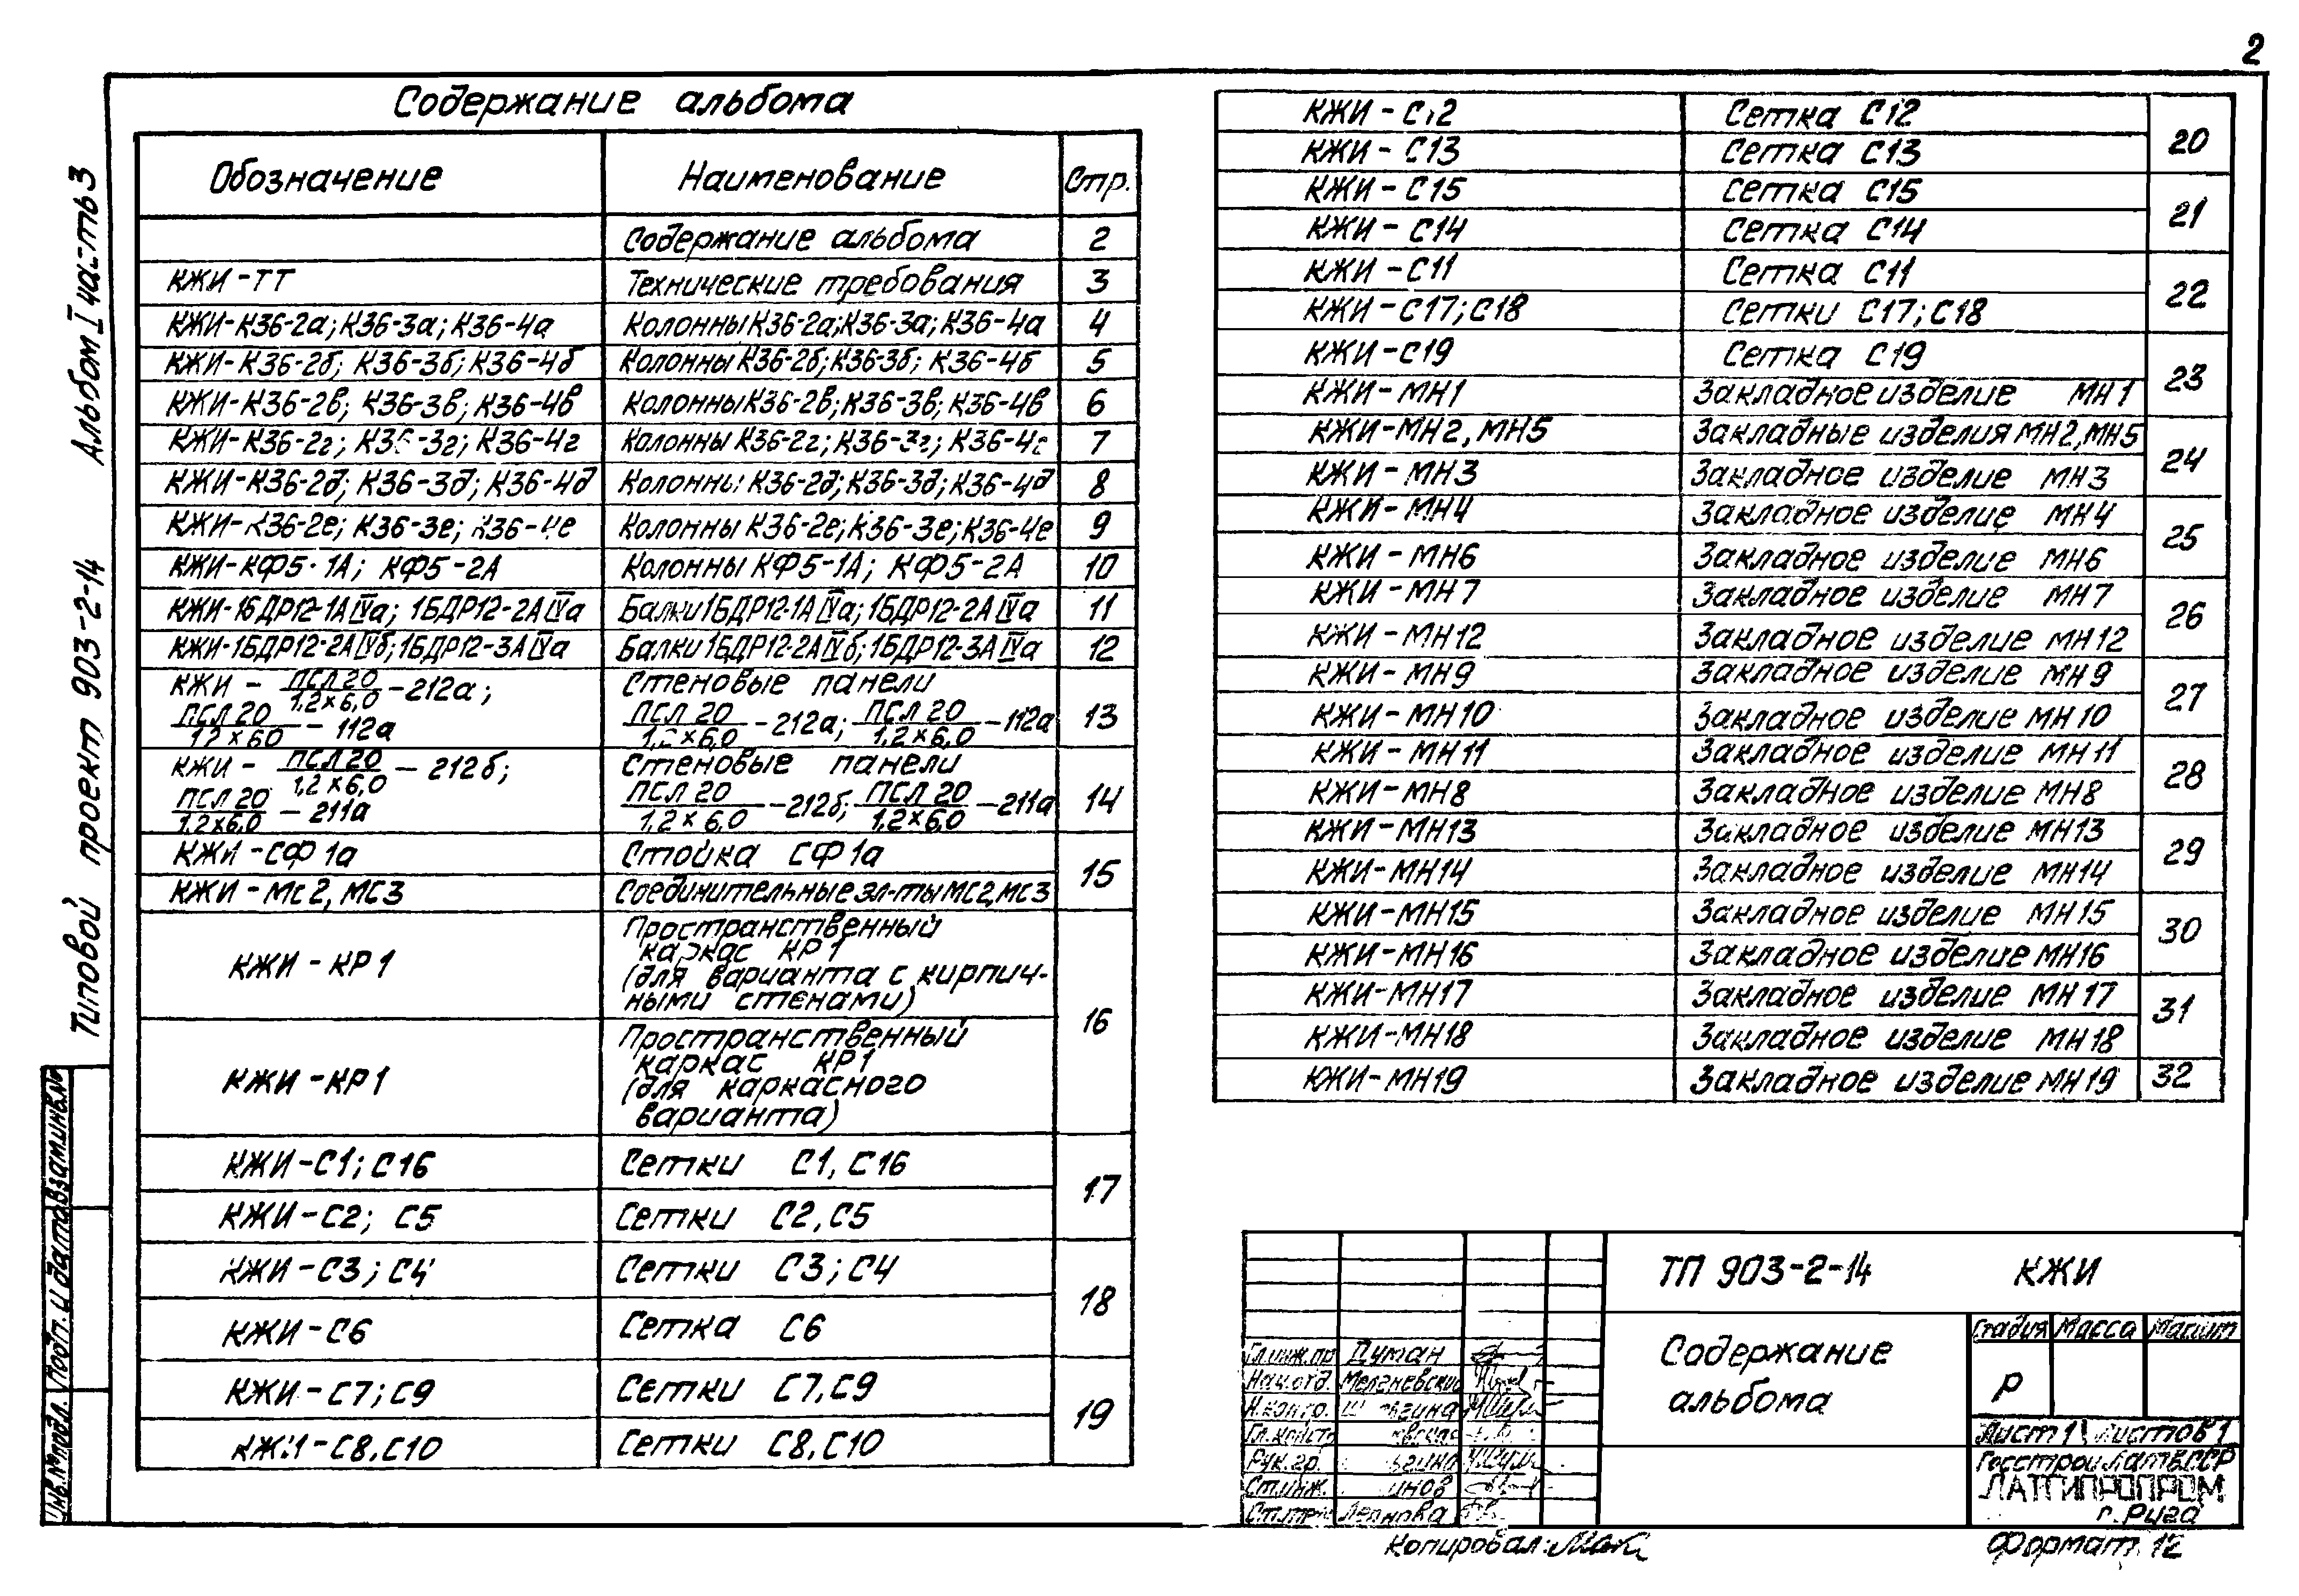 2
Типовой проект 903-2-14 Альбом I часть 3
Содержание альбома
Обозначение Наименование Стр.
Содержание альбома 2
КЖИ-ТТ Технические требования 3
КЖИ-К36-2а; К36-3а; К36-4а Колонны К36-2а; К36-3а; К36-4а 4
КЖИ-К36-2б; К36-3б; К36-4б Колонны К36-2б; К36-3б; К36-4б 5
КЖИ-К36-2в; К36-3в; К36-4в Колонны К36-2в; К36-3в; К36-4в 6
КЖИ-К36-2г; К36-3г; К36-4г Колонны К36-2г; К36-3г; К36-4г 7
КЖИ-К36-2д; К36-3д; К36-4д Колонны К36-2д; К36-3д; К36-4д 8
КЖИ-К36-2е; К36-3е; К36-4е Колонны К36-2е; К36-3е; К36-4е 9
КЖИ-КФ5-1А; КФ5-2А Колонны КФ5-1А; КФ5-2А 10
КЖИ-1БДР12-1АIVа; 1БДР12-2АIVа Балки 1БДР12-1АIVа; 1БДР12-2АIVа 11
КЖИ-1БДР12-2АIVб; 1БДР12-3АIVа Балки 1БДР12-2АIVб; 1БДР12-3АIVа 12
КЖИ - ПСЛ 20/1,2×6,0 -212а; Стеновые панели
ПСЛ 20/12×60 - 112а ПСЛ 20/1,2×6,0 -212а; ПСЛ 20/1,2×6,0 -112а 13
КЖИ - ПСЛ 20/1,2×6,0 - 212б; Стеновые панели
ПСЛ 20/1,2×6,0 - 211а ПСЛ 20/1,2×6,0 -212б; ПСЛ 20/1,2×6,0 -211а 14
КЖИ-СФ1а Стойка СФ1а 15
КЖИ-МС2, МС3 Соединительные эл-ты МС2, МС3
КЖИ-КР1 Пространственный
каркас КР1
(для варианта с кирпич-
ными стенами)
16
КЖИ-КР1 Пространственный
каркас КР1
(для каркасного
варианта)
КЖИ-С1; С16 Сетки С1, С16 17
КЖИ-С2; С5 Сетки С2, С5
КЖИ-С3; С4 Сетки С3; С4 18
КЖИ-С6 Сетка С6
КЖИ-С7; С9 Сетки С7, С9 19
КЖИ-С8, С10 Сетки С8, С10
КЖИ-С12 Сетка С12 20
КЖИ-С13 Сетка С13
КЖИ-С15 Сетка С15 21
КЖИ-С14 Сетка С14
КЖИ-С11 Сетка С11 22
КЖИ-С17; С18 Сетки С17; С18
КЖИ-С19 Сетка С19 23
КЖИ-МН1 Закладное изделие МН1
КЖИ-МН2, МН5 Закладные изделия МН2, МН5 24
КЖИ-МН3 Закладное изделие МН3
КЖИ-МН4 Закладное изделие МН4 25
КЖИ-МН6 Закладное изделие МН6
КЖИ-МН7 Закладное изделие МН7 26
КЖИ-МН12 Закладное изделие МН12
КЖИ-МН9 Закладное изделие МН9 27
КЖИ-МН10 Закладное изделие МН10
КЖИ-МН11 Закладное изделие МН11 28
КЖИ-МН8 Закладное изделие МН8
КЖИ-МН13 Закладное изделие МН13 29
КЖИ-МН14 Закладное изделие МН14
КЖИ-МН15 Закладное изделие МН15 30
КЖИ-МН16 Закладное изделие МН16
КЖИ-МН17 Закладное изделие МН17 31
КЖИ-МН18 Закладное изделие МН18
КЖИ-МН19 Закладное изделие МН19 32
ТП 903-2-14 КЖИ
Содержание
альбома
Стадия Масса Масшт
Р
Лист 1 Листов 1
Госстрой Латв.ССР
ЛАТГИПРОПРОМ
г. Рига
Гл.инж.пр Думан
Нач.отд.
Н.контр.
Гл.констр
Рук.гр.
Ст.инж.
Ст.техн
Копировал:
Формат 12
Инв.№подл. Подп. и дата Взам.инв.№